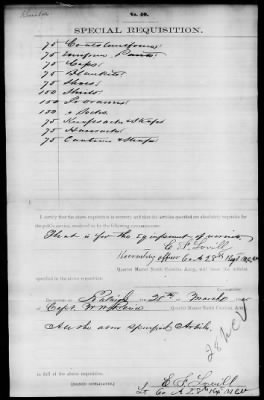 No. 40.
SPECIAL REQUISITION.
75 Coats uniforms
75 uniform Pants
75 Caps
75 Blankets
75 Shoes
150 Shirts
150 Drawers
150 " Socks
75 Knapsacks & Straps
75 Haversacks
75 Canteens & Straps
I certify that the above requisition is correct; and that the articles specified are absolutely requisite for
the public service, rendered so by the following circumstances:
That is for the Equipment of
E. F. Lovill
Recruiting officer Co A 28th Regt N.C.V.
Quarter Master North Carolina Army, will issue the articles
specified in the above requisition.
Raleigh 20th March
Quarter Master North Carolina Army
Capt.
All the above Specified Articles
28 NCV
in full of the above requisition.
(SIGNED DUPLICATES.)
E. F. Lovill
Lt Co A 28th Regt N.C.V.